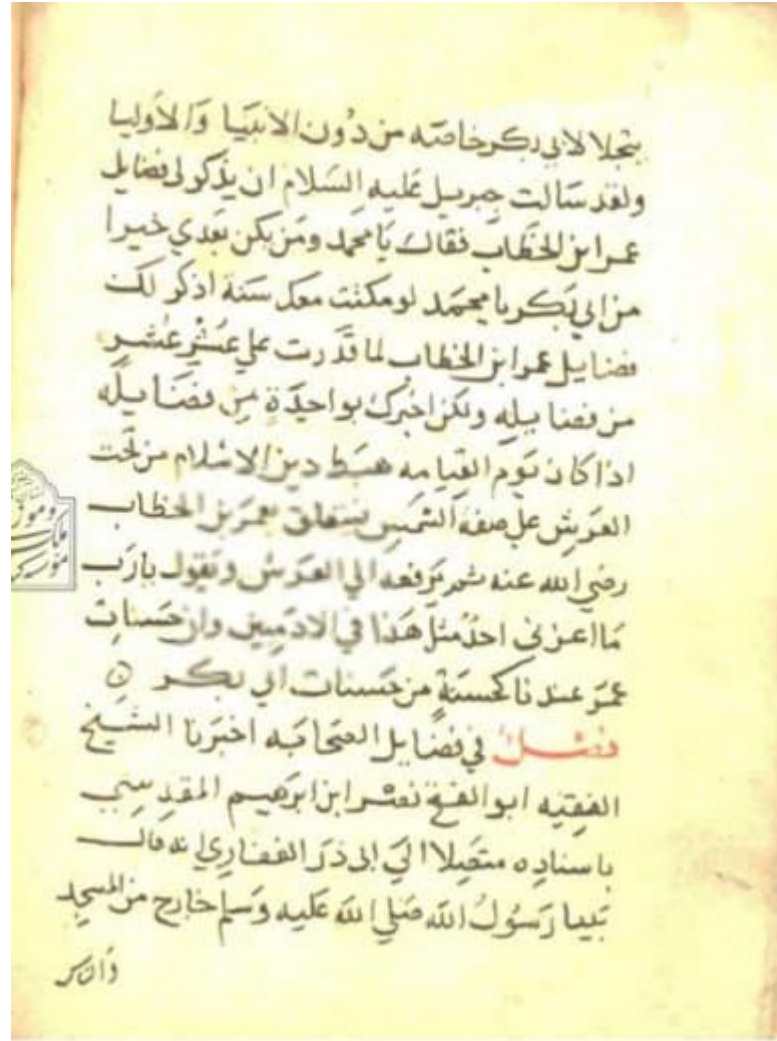 يتجلا لابي بكر خاصه من دون الانبيا والاوليا
ولقد سالت جبريل عليه السلام ان يذكر لي فضايل
عمر ابن الخطاب فقال يا محمد ومن يكن بعدي خيرا
من ابي بكر يا محمد لو مكثت معك سنة اذكر لك
فضايل عمر ابن الخطاب لما قدرت علي عشر عشر
من فضايله ولكن اخبرك بواحدة من فضايله
اذا كان يوم القيامه هبط دين الاسلام من تحت
العرش علي صفة الشمس يتعلق بعمر بن الخطاب
رضي الله عنه ثم يرفعه الي العرش ويقول يارب
ما اعزني احد مثل هذا في الادميين وان حسنات
عمر عندنا كحسنة من حسنات ابي بكر
فصل في فضايل الصحابه اخبرنا الشيخ
الفقيه ابو الفتح نصر ابن ابرهيم المقدسي
باسناده متصلا الي ابي ذر الغفاري انه قال
بينا رسول الله صلي الله عليه وسلم خارج من المسجد